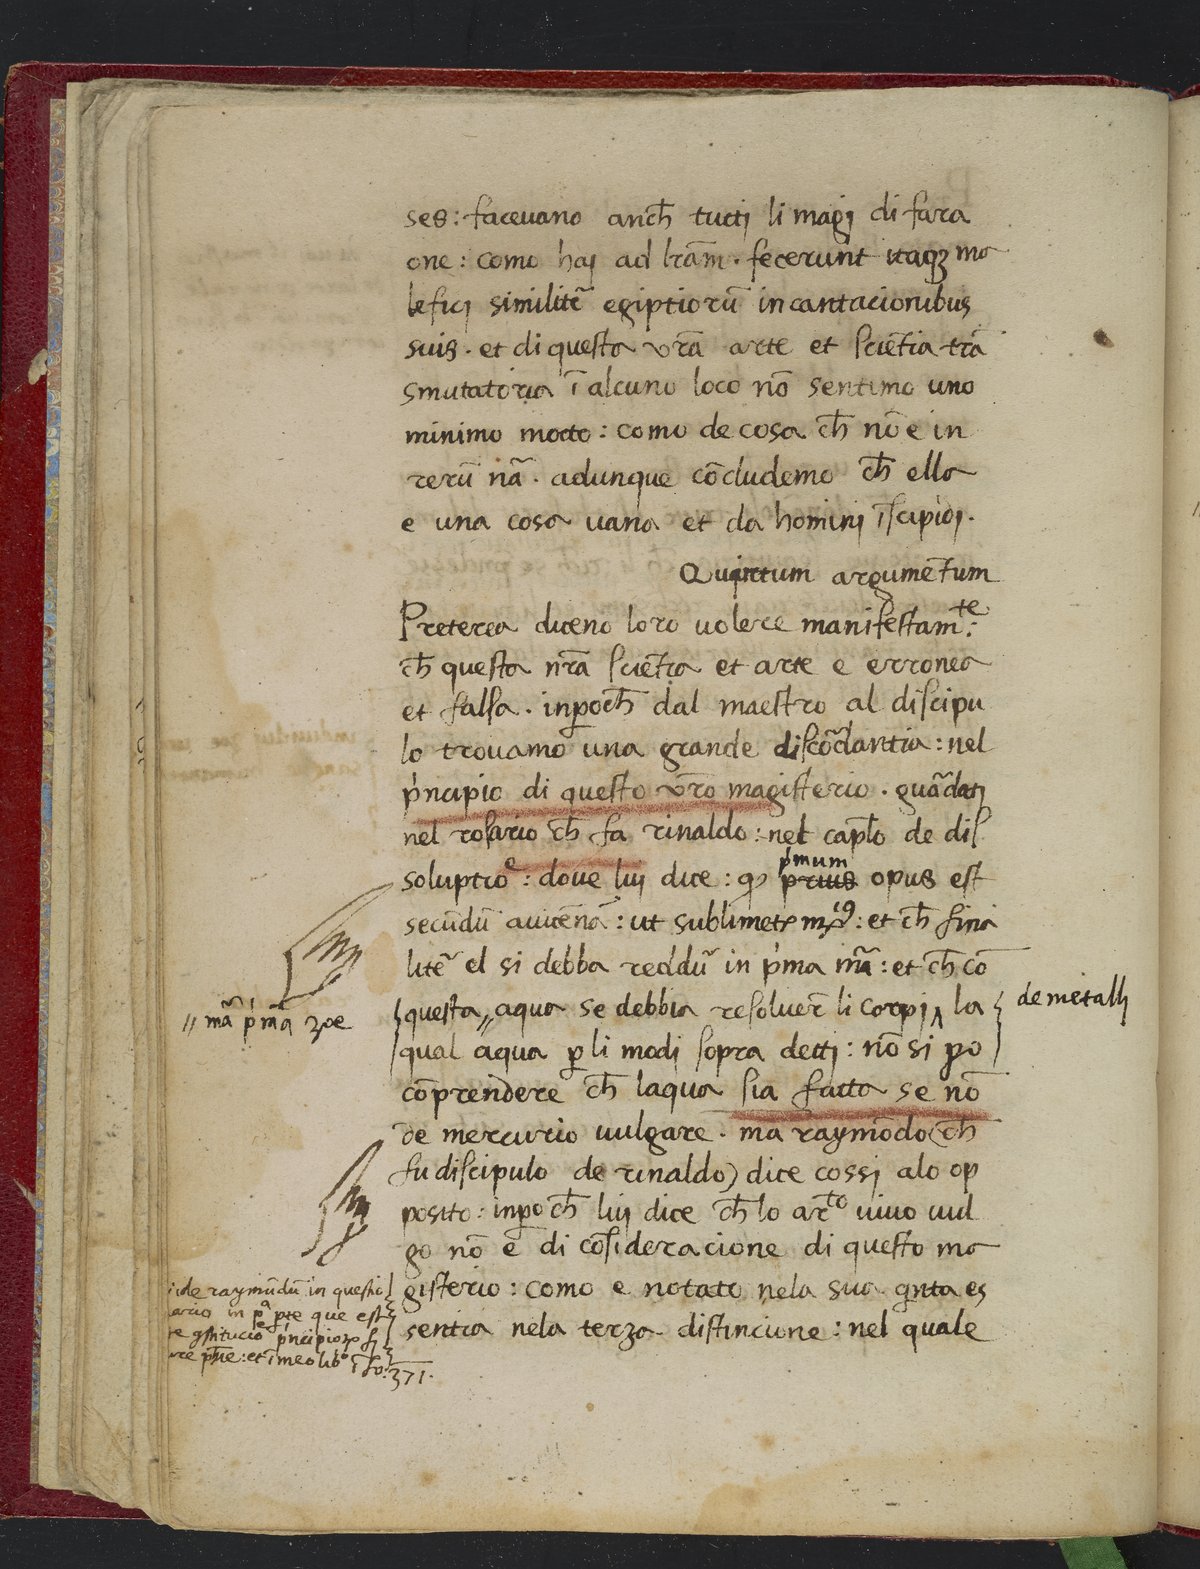 ses: facevano anch̄ tuctj li magj di fara
one: como haj ad lr̄am. fecerunt itaqꝫ ma
leficj similit̄ egiptiorū incantacionibus
suis. et di questa vr̄a arte et scien̄tia trā
smutatoria ī alcuno loco nō sentimo uno
minimo motto: como de cosa ch̄ nō e in
rerū nā. adunque cōcludemo ch̄ ella
e una cosa vana et da hominj īscipidj.
argumen̄tum
Preterea diceno loro volere manifestamᵗᵉ:
ch̄ questa nr̄a scien̄tia et arte e erronea
et falsa. inꝑoch̄ dal maestro al discipu
lo trovamo una grande discōdantia: nel
pⁱncipio di questo vr̄o magisterio. guādatj
nel rosario ch̄ fa rinaldo: nel capl̄o de dis
soluptioᵉ: dove luj dice: qꝫ pⁱmum prius opus est
secūdū avicennā: ut sublimetr mꝫ⁹: et ch̄ fina
litē el si debba reddū in pⁱma mā: et ch̄ cō
questa〃aqua se debbia resolver̄ li corpj‸ la
de metallj
〃 mā pⁱmā ꝫoe
qual aqua ꝑ li modj sopra dettj: nō si po
cōprendere ch̄ laqua sia fatta se nō
de mercurio vulgare. ma raymōdo (ch̄
fu discipulo de rinaldo) dice cossj alo op
posito: inꝑoch̄ luj dice ch̄ lo arᵗᵒ vivo vul
go nō e di cōsideracione di questo ma
gisterio: como e notato nela sua qⁱnta es
sentia nela terza distincione: nel quale
ide raymūdū in questio
ario in pᵃ pte que est
pⁱncipioꝝ
et ī meo libᵒ ī fo: 371.